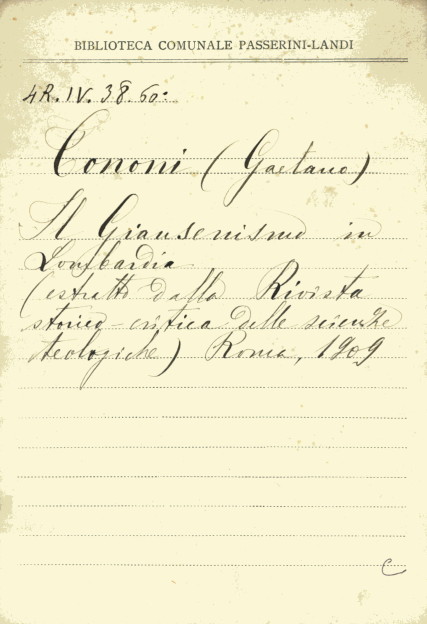 BIBLIOTECA COMUNALE PASSERINI-LANDI
4R. IV. 38 60:
Cononi (Gaetano)
Il Giansenismo in
Lombardia
(estratto dalla Rivista
storico-critica delle scienze
teologiche) Roma, 1909
C